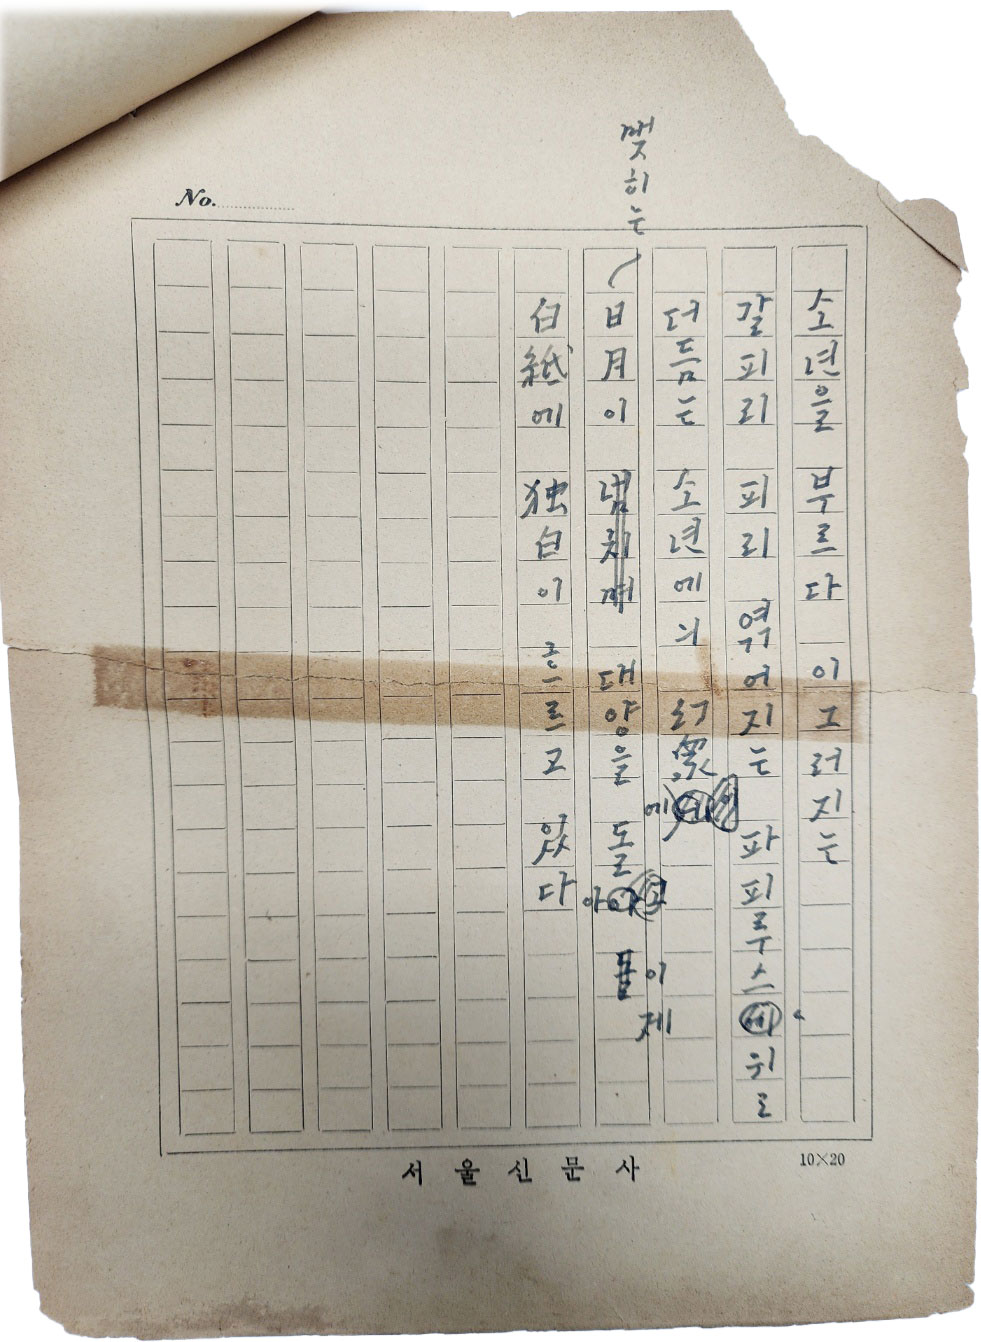 No.
소년을 부르다 이그러지는
갈피리 피리 엮어지는 파피루스위로
더듬는 소년에의 幻象에
깻히는
日月이 대양을 돌아 이제
白紙에 独白이 흐르고 있다
서울신문사
10×20